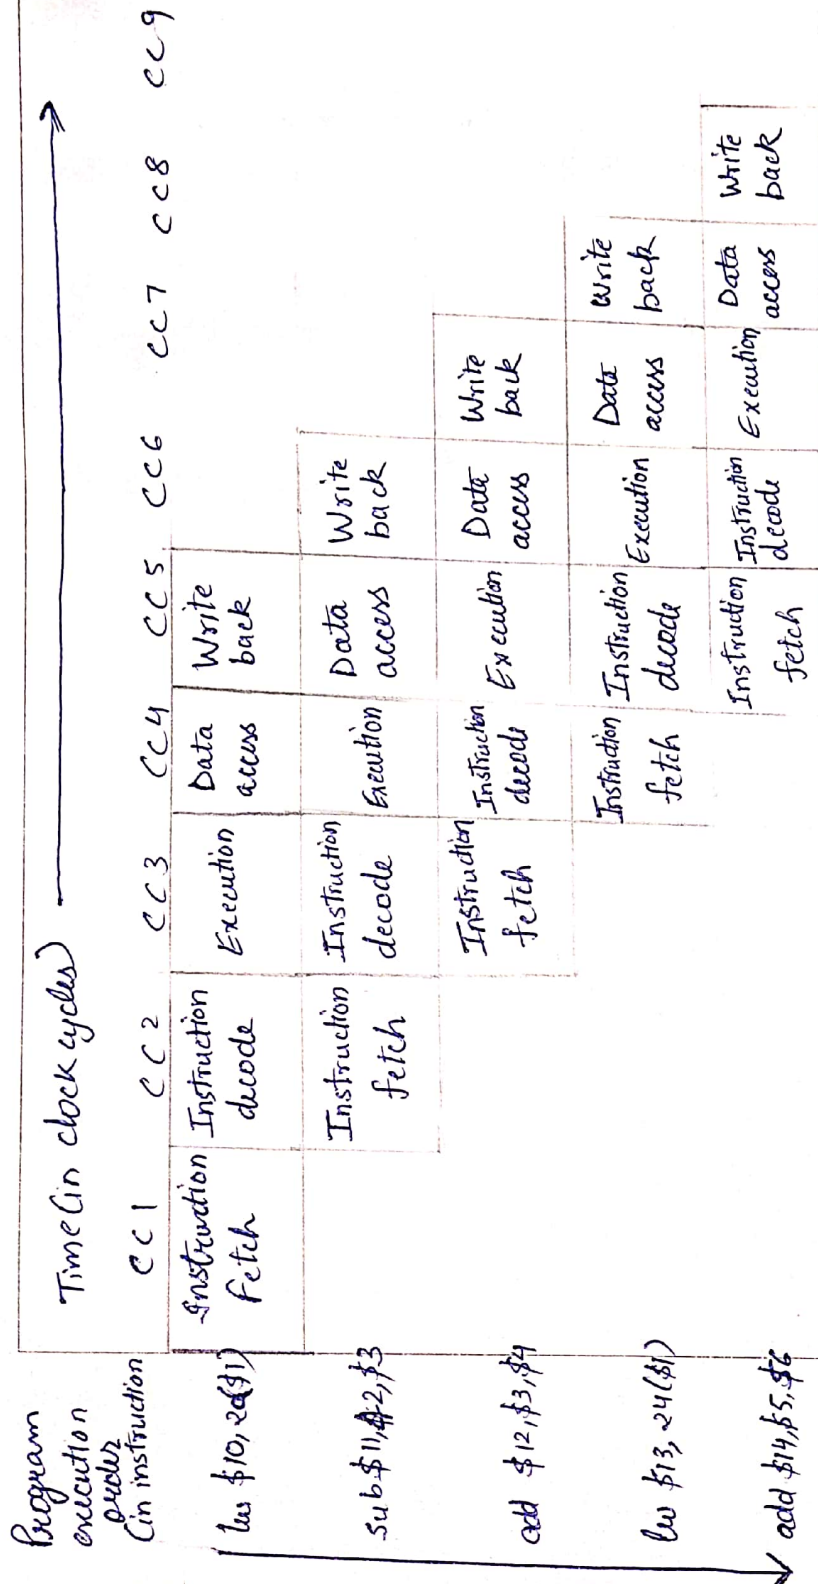 Time (in clock cycles)
CC1 CC2 CC3 CC4 CC5 CC6 CC7 CC8 CC9
Program
execution
order
(in instruction
lw $10, 20($1)
Instruction
Fetch
Instruction
decode
Execution
Data
access
Write
back
sub $11, $2, $3
Instruction
fetch
Instruction
decode
Execution
Data
access
Write
back
add $12, $3, $4
Instruction
fetch
Instruction
decode
Execution
Data
access
Write
back
lw $13, 24($1)
Instruction
fetch
Instruction
decode
Execution
Data
access
Write
back
add $14, $5, $6
Instruction
fetch
Instruction
decode
Execution
Data
access
Write
back